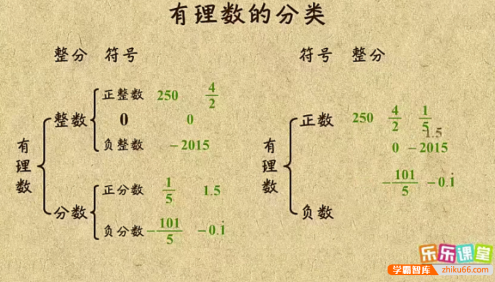 有理数的分类
整分 符号
符号 整分
有理数
整数
正整数 250 4/2
0 0
负整数 -2015
分数
正分数 1/5 1.5
负分数 -101/5 -0.1̇
有理数
正数 250 4/2 1/5
1.5
0 -2015
-101/5 -0.1̇
负数
乐乐课堂
学霸智库
zhiku66.com